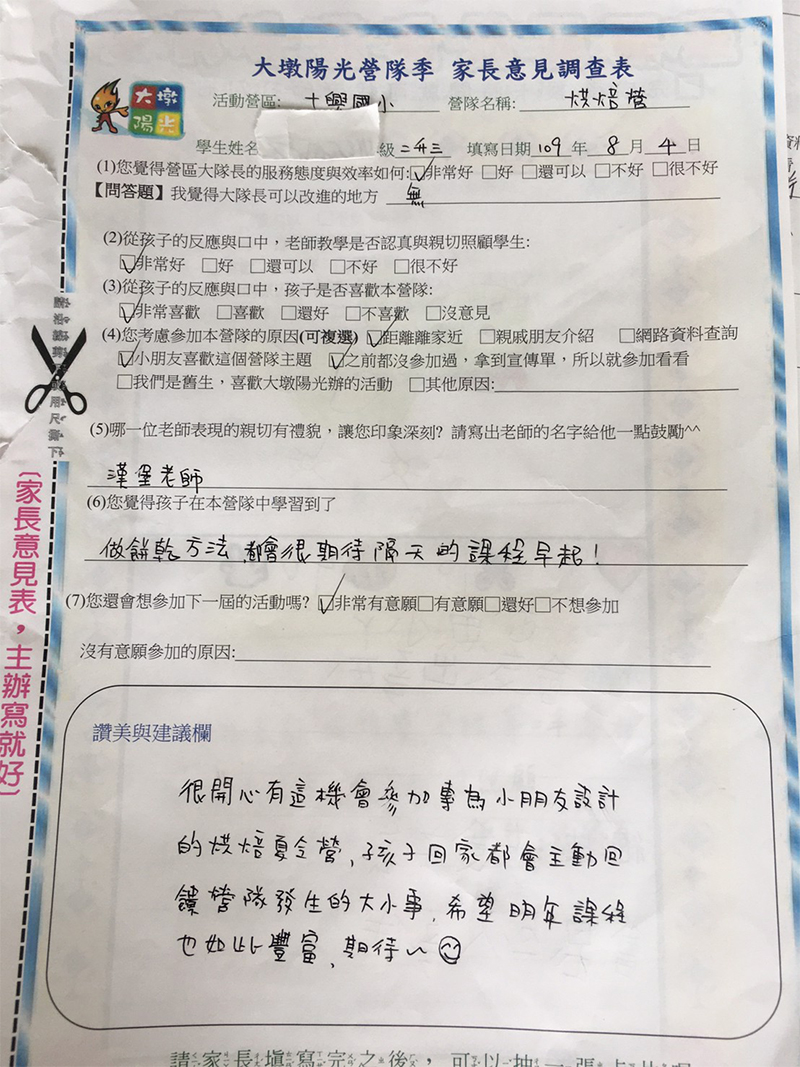 大墩陽光營隊季 家長意見調查表
大墩
陽光
活動營區: 十興國小 營隊名稱: 烘焙營
學生姓名 級 二升三 填寫日期 109 年 8 月 4 日
(1)您覺得營區大隊長的服務態度與效率如何:☑非常好 □好 □還可以 □不好 □很不好
【問答題】我覺得大隊長可以改進的地方 無
(2)從孩子的反應與口中，老師教學是否認真與親切照顧學生:
☑非常好 □好 □還可以 □不好 □很不好
(3)從孩子的反應與口中，孩子是否喜歡本營隊:
☑非常喜歡 □喜歡 □還好 □不喜歡 □沒意見
(4)您考慮參加本營隊的原因(可複選) ☑距離離家近 □親戚朋友介紹 □網路資料查詢
☑小朋友喜歡這個營隊主題 ☑之前都沒參加過，拿到宣傳單，所以就參加看看
□我們是舊生，喜歡大墩陽光辦的活動 □其他原因:
(5)哪一位老師表現的親切有禮貌，讓您印象深刻? 請寫出老師的名字給他一點鼓勵^^
漢堡老師
(6)您覺得孩子在本營隊中學習到了
做餅乾方法，都會很期待隔天的課程早起！
(7)您還會想參加下一屆的活動嗎? ☑非常有意願□有意願□還好□不想參加
沒有意願參加的原因:
讚美與建議欄
很開心有這機會參加專為小朋友設計
的烘焙夏令營，孩子回家都會主動回
饋營隊發生的大小事，希望明年課程
也如此豐富，期待~☺
請家長填寫完之後，可以抽一張
〔家長意見表，主辦寫就好〕